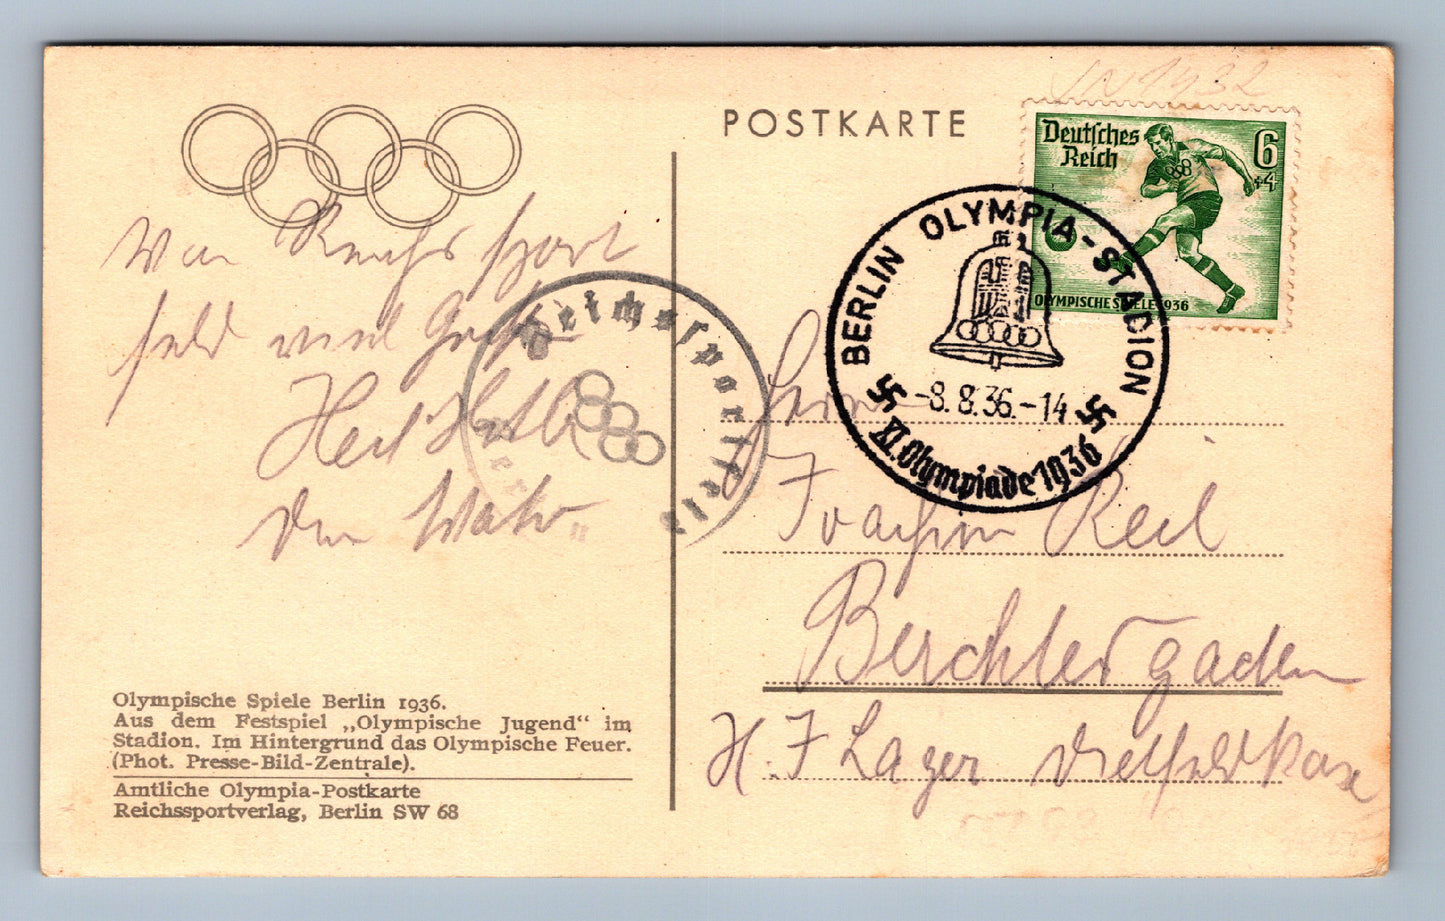 POSTKARTE
Deutsches
Reich
6
+4
OLYMPISCHE SPIELE 1936
BERLIN OLYMPIA-STADION
-8.8.36.-14
XI. Olympiade 1936
Reichssportfeld
Reichssport
feld viel Grüße
Heil
Herrn
Joachim Keil
Berchtesgaden
H. J Lager
Olympische Spiele Berlin 1936.
Aus dem Festspiel „Olympische Jugend“ im
Stadion. Im Hintergrund das Olympische Feuer.
(Phot. Presse-Bild-Zentrale).
Amtliche Olympia-Postkarte
Reichssportverlag, Berlin SW 68